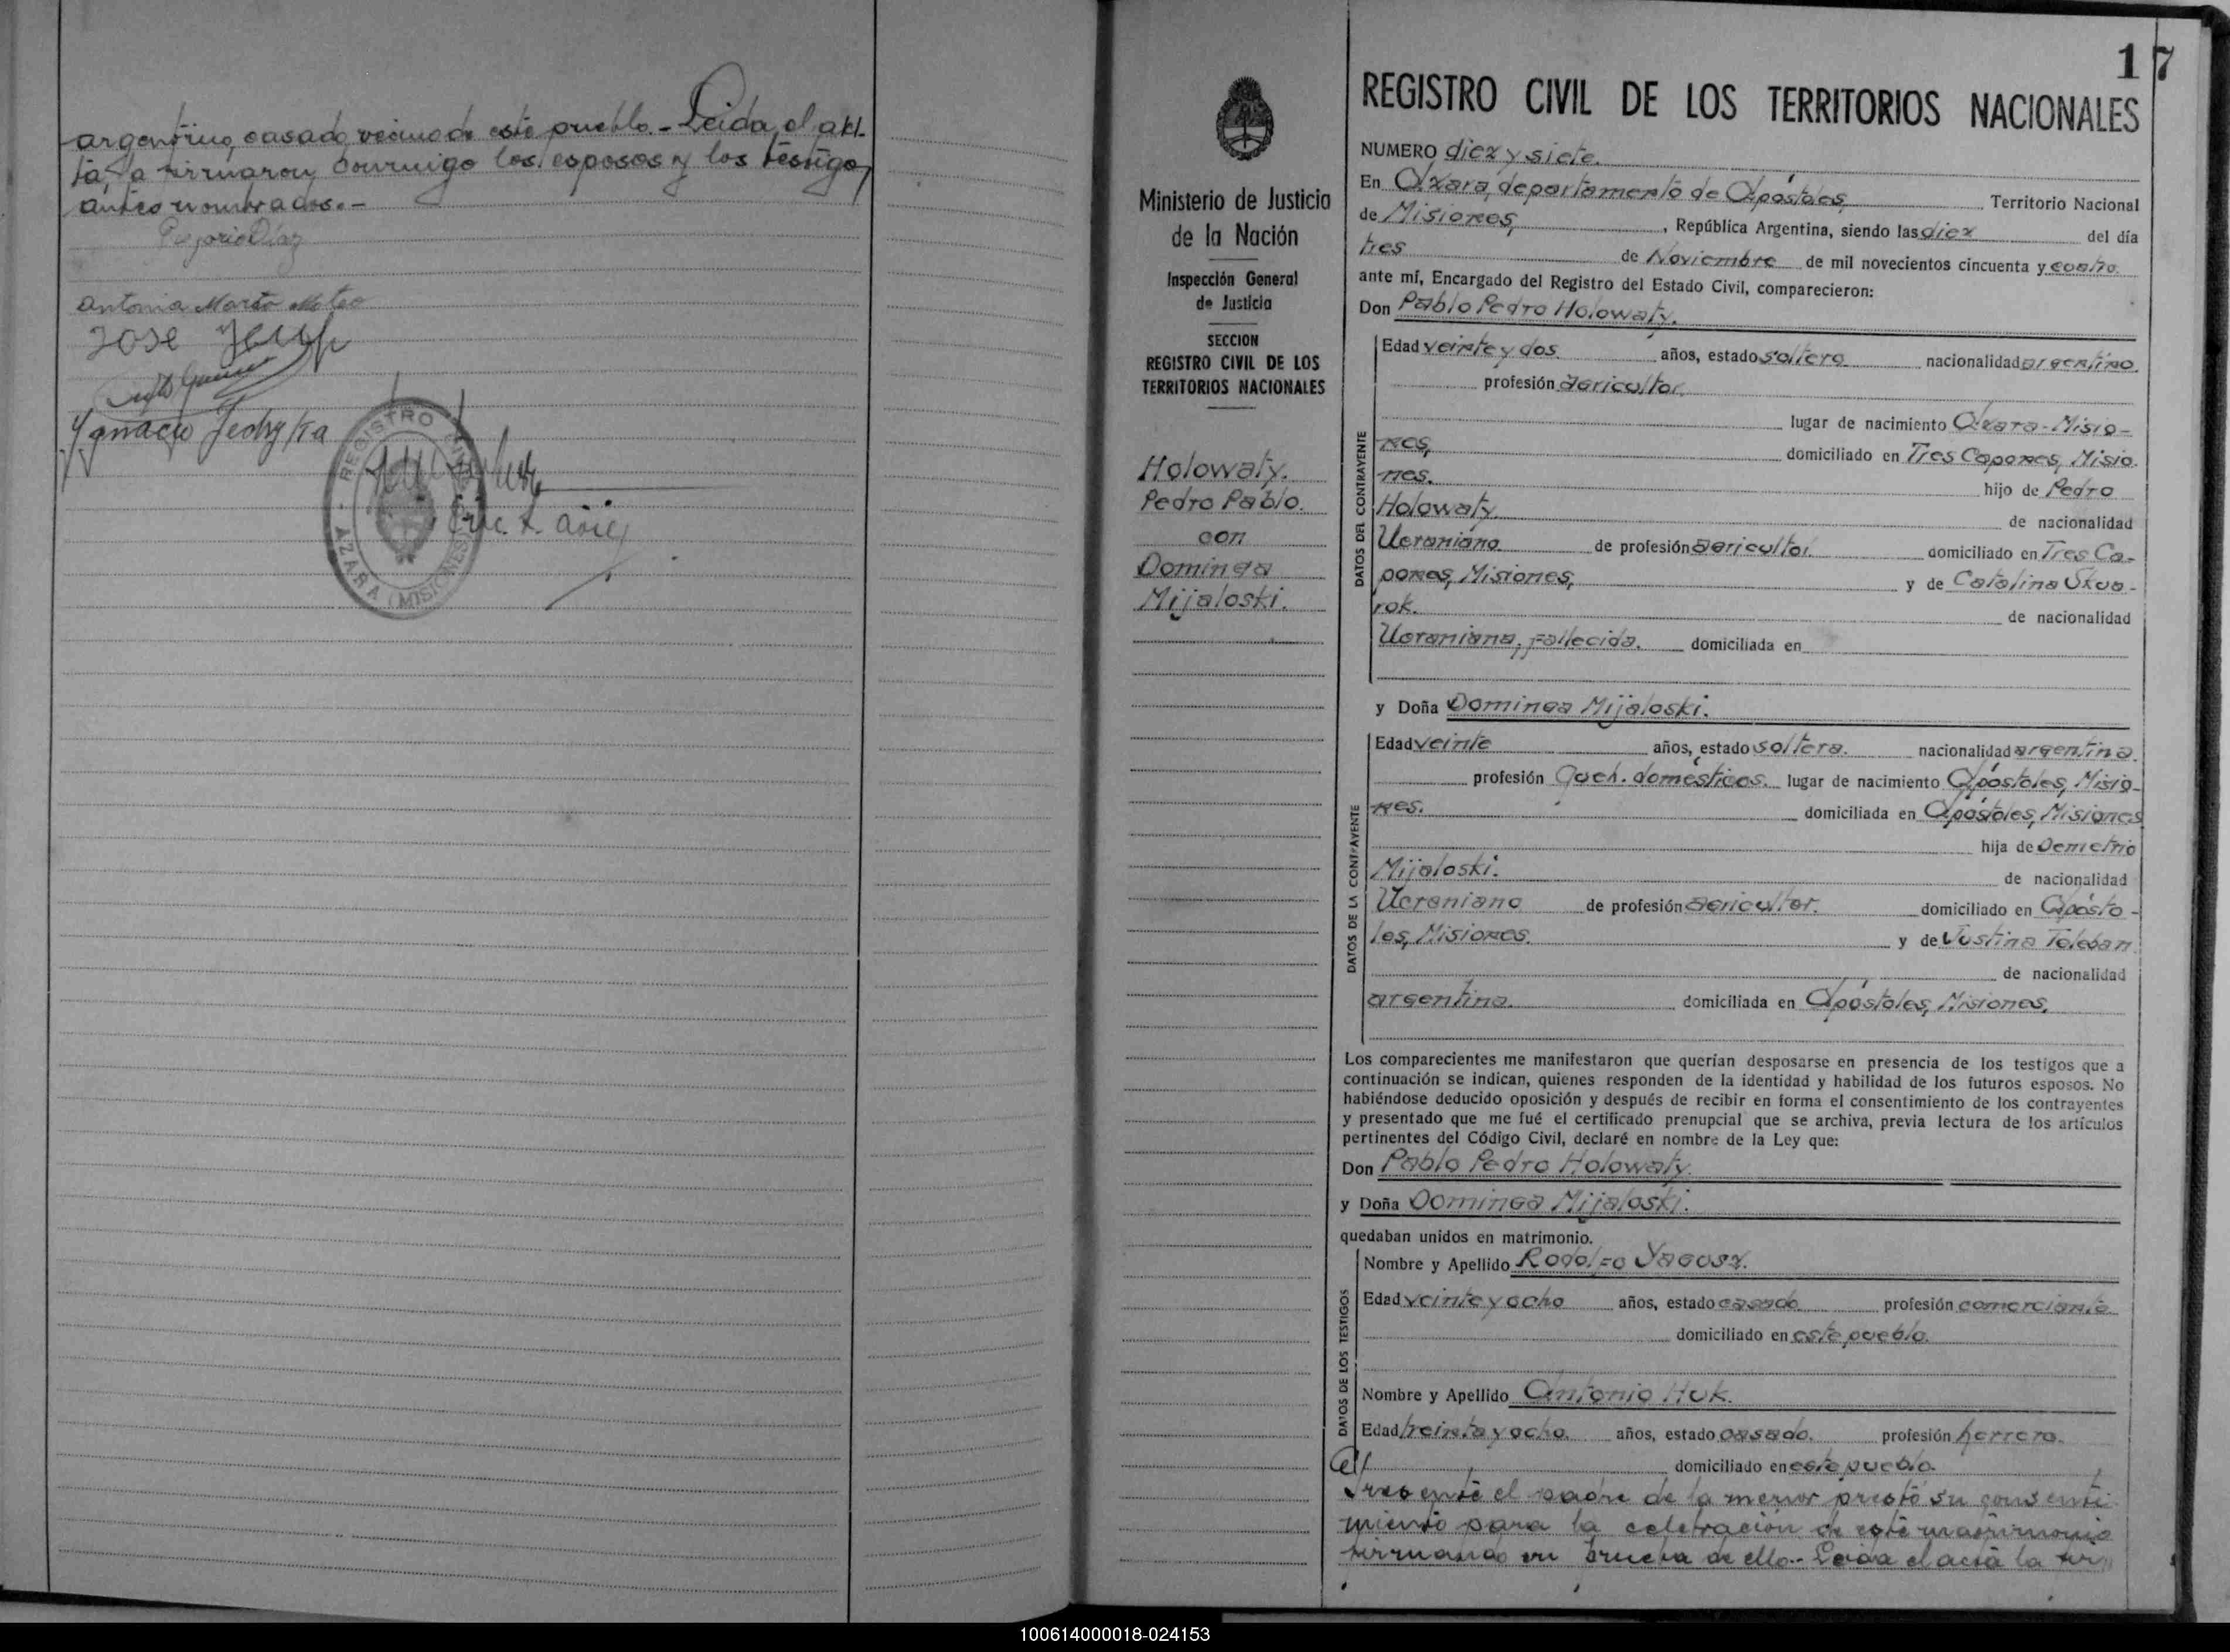 argentino, casado, vecino de este pueblo. - Leida el ak-
ta, la firmaron conmigo los esposos y los testigos
antes nombrados. -
Díaz
Antonia Marta Mateo
JOSE
Ygnacio
REGISTRO CIVIL
AZARA (MISIONES)
17
REGISTRO CIVIL DE LOS TERRITORIOS NACIONALES
Ministerio de Justicia
de la Nación
Inspección General
de Justicia
SECCION
REGISTRO CIVIL DE LOS
TERRITORIOS NACIONALES
Holowaty.
Pedro Pablo.
con
Dominga
Mijaloski.
NUMERO diez y siete.
En Azara, departamento de Apóstoles, Territorio Nacional
de Misiones, , República Argentina, siendo las diez del día
tres de Noviembre de mil novecientos cincuenta y cuatro.
ante mí, Encargado del Registro del Estado Civil, comparecieron:
Don Pablo Pedro Holowaty.
DATOS DEL CONTRAYENTE
Edad veinte y dos. años, estado soltero nacionalidad argentino.
profesión agricultor.
lugar de nacimiento Azara-Misio-
nes, domiciliado en Tres Capones, Misio.
nes. hijo de Pedro
Holowaty. de nacionalidad
Ucraniano de profesión agricultor. domiciliado en Tres Ca-
pones, Misiones, y de Catalina Skva-
rok. de nacionalidad
Ucraniana, fallecida. domiciliada en
y Doña Dominga Mijaloski.
DATOS DE LA CONTRAYENTE
Edad veinte años, estado soltera. nacionalidad argentina.
profesión Queh. domésticos. lugar de nacimiento Apóstoles, Misio-
nes. domiciliada en Apóstoles, Misiones
hija de Demetrio
Mijaloski. de nacionalidad
Ucraniano de profesión agricultor. domiciliado en Apósto-
les, Misiones. y de Justina Teleban
de nacionalidad
argentina. domiciliada en Apóstoles, Misiones.
Los comparecientes me manifestaron que querían desposarse en presencia de los testigos que a
continuación se indican, quienes responden de la identidad y habilidad de los futuros esposos. No
habiéndose deducido oposición y después de recibir en forma el consentimiento de los contrayentes
y presentado que me fué el certificado prenupcial que se archiva, previa lectura de los artículos
pertinentes del Código Civil, declaré en nombre de la Ley que:
Don Pablo Pedro Holowaty.
y Doña Dominga Mijaloski.
quedaban unidos en matrimonio.
DATOS DE LOS TESTIGOS
Nombre y Apellido Rodolfo Yacusz.
Edad veinte y ocho años, estado casado profesión comerciante
domiciliado en este pueblo.
Nombre y Apellido Antonio Huk.
Edad treinta y ocho. años, estado casado. profesión herrero.
domiciliado en este pueblo.
Presente el padre de la menor prestó su consenti-
miento para la celebración de este matrimonio
firmando en prueba de ello. - Leida el acta la fir
100614000018-024153